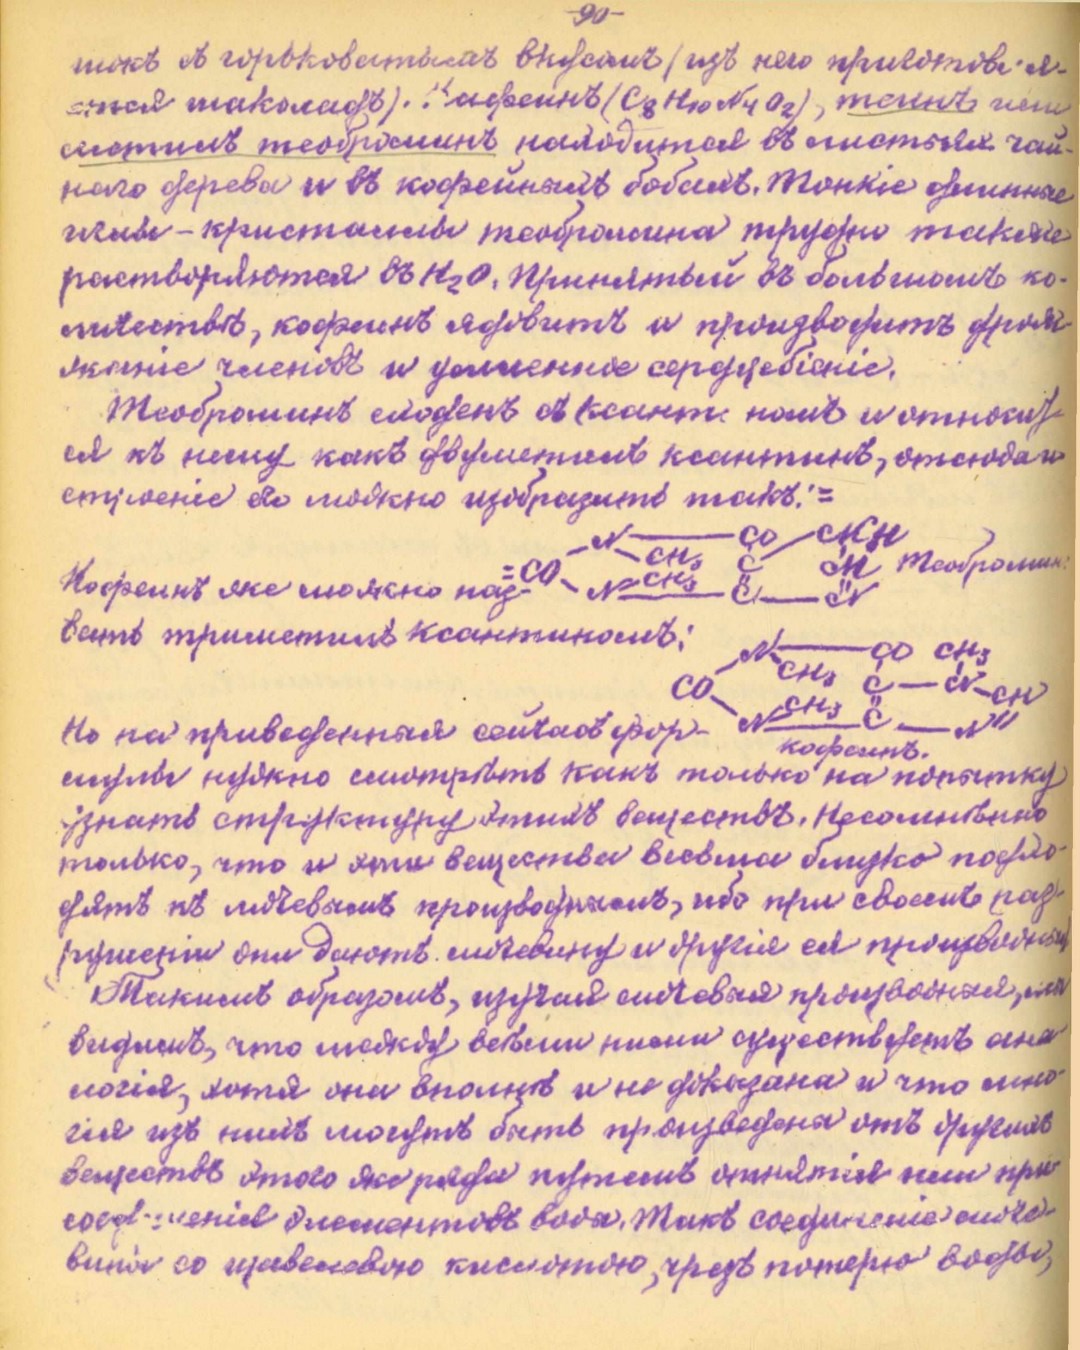 -90-
шокъ съ горьковатымъ вкусомъ (изъ него приготовля-
ется шаколадъ). Кафеинъ (C8H10N4O2), теинъ или
метилъ теоброминъ находится въ листьяхъ чай-
наго дерева и въ кофейныхъ бобахъ. Тонкіе длинные
иглы - кристаллы теобромина трудно также
растворяются въ H2O. Принятый въ большомъ ко-
личествѣ, кофеинъ ядовитъ и производитъ дрож
жаніе членовъ и усиленное сердцебіеніе.
Теоброминъ сходенъ съ ксантиномъ и относит-
ся къ нему какъ двуметилъ ксантинъ, отсюда и
строеніе его можно изобразить такъ:=
N — CO CH
CH3 C N Теоброминъ
=CO CH3
Кофеинъ же можно назы-
N = C — N
вать триметилъ ксантиномъ:
N — CO CH3
CH3 C — N CH
CO CH3
N = C — N
Но на приведенныя сейчасъ фор-
кофеинъ.
мулы нужно смотрѣть какъ только на попытку
узнать структуру этихъ веществъ. Несомнѣнно
только, что и эти вещества весьма близко подхо-
дятъ къ мочевымъ производнымъ, ибо при своемъ раз-
рушеніи они даютъ мочевину и другія ея производныя
Такимъ образомъ, изучая мочевыя производныя, мы
видимъ, что между всѣми ними существуетъ ана
логія, хотя она вполнѣ и не доказана и что мно-
гія изъ нихъ могутъ быть произведены отъ другихъ
веществъ этого же ряда путемъ отнятія или при
соединенія элементовъ воды. Такъ соединеніе моче-
вины со щавелевою кислотою, чрезъ потерю воды,